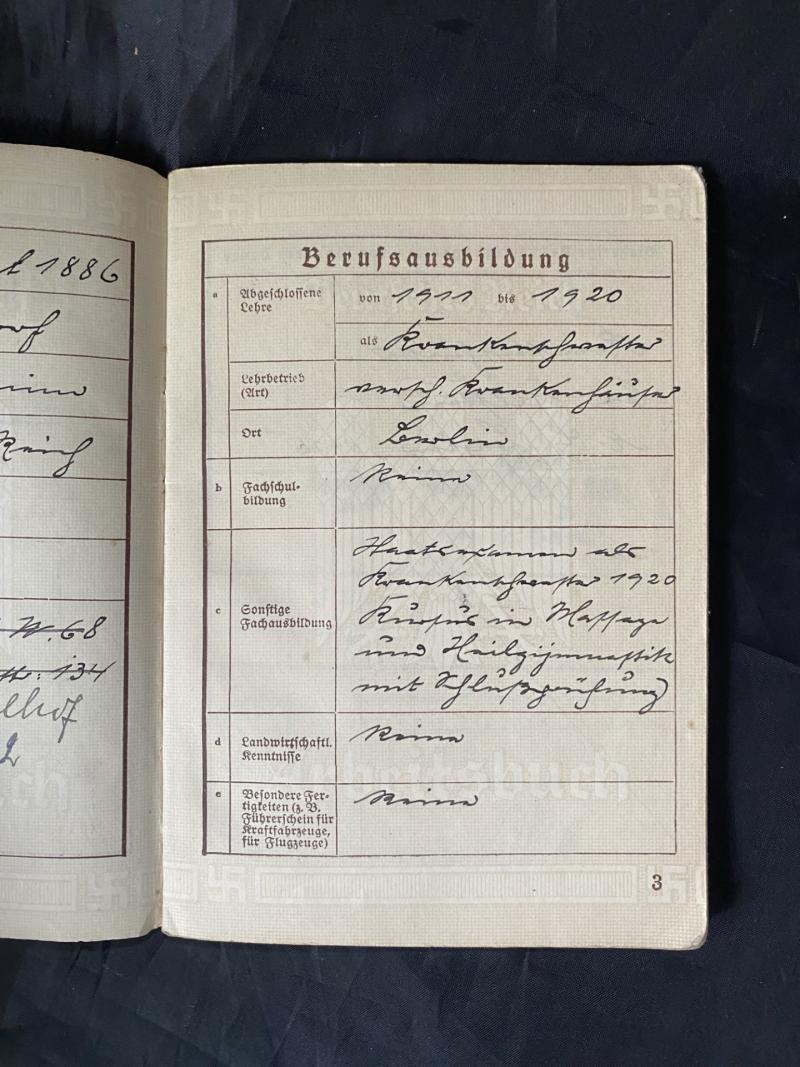 1886
Reich
W. 68
134
2
Berufsausbildung
a Abgeschlossene Lehre
von 1911 bis 1920
als Krankenschwester
Lehrbetrieb (Art)
versch. Krankenhäuser
Ort
Berlin
b Fachschul-
bildung
Keine
c Sonstige
Fachausbildung
Staatsexamen als
Krankenschwester 1920
Kursus in Massage
und Heilgymnastik
mit Schlußprüfung
d Landwirtschaftl.
Kenntnisse
Keine
e Besondere Fer-
tigkeiten (z. B.
Führerschein für
Kraftfahrzeuge,
für Flugzeuge)
Keine
Arbeitsbuch
3